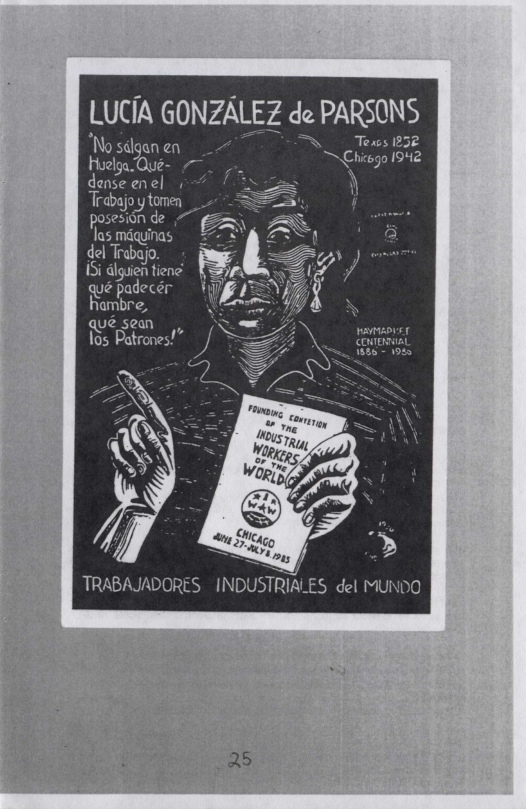 LUCÍA GONZÁLEZ de PARSONS
"No sálgan en
Huelga. Qué-
dense en el
Trabajo y tomen
posesión de
las máquinas
del Trabajo.
¡Si álguien tiene
qué padecér
hambre,
qué sean
los Patrones!"
Texas 1852
Chicago 1942
HAYMARKET
CENTENNIAL
1886 - 1986
FOUNDING CONVETION
OF THE
INDUSTRIAL
WORKERS
OF THE
WORLD
IWW
CHICAGO
JUNE 27-JULY 8, 1985
TRABAJADORES INDUSTRIALES del MUNDO
25